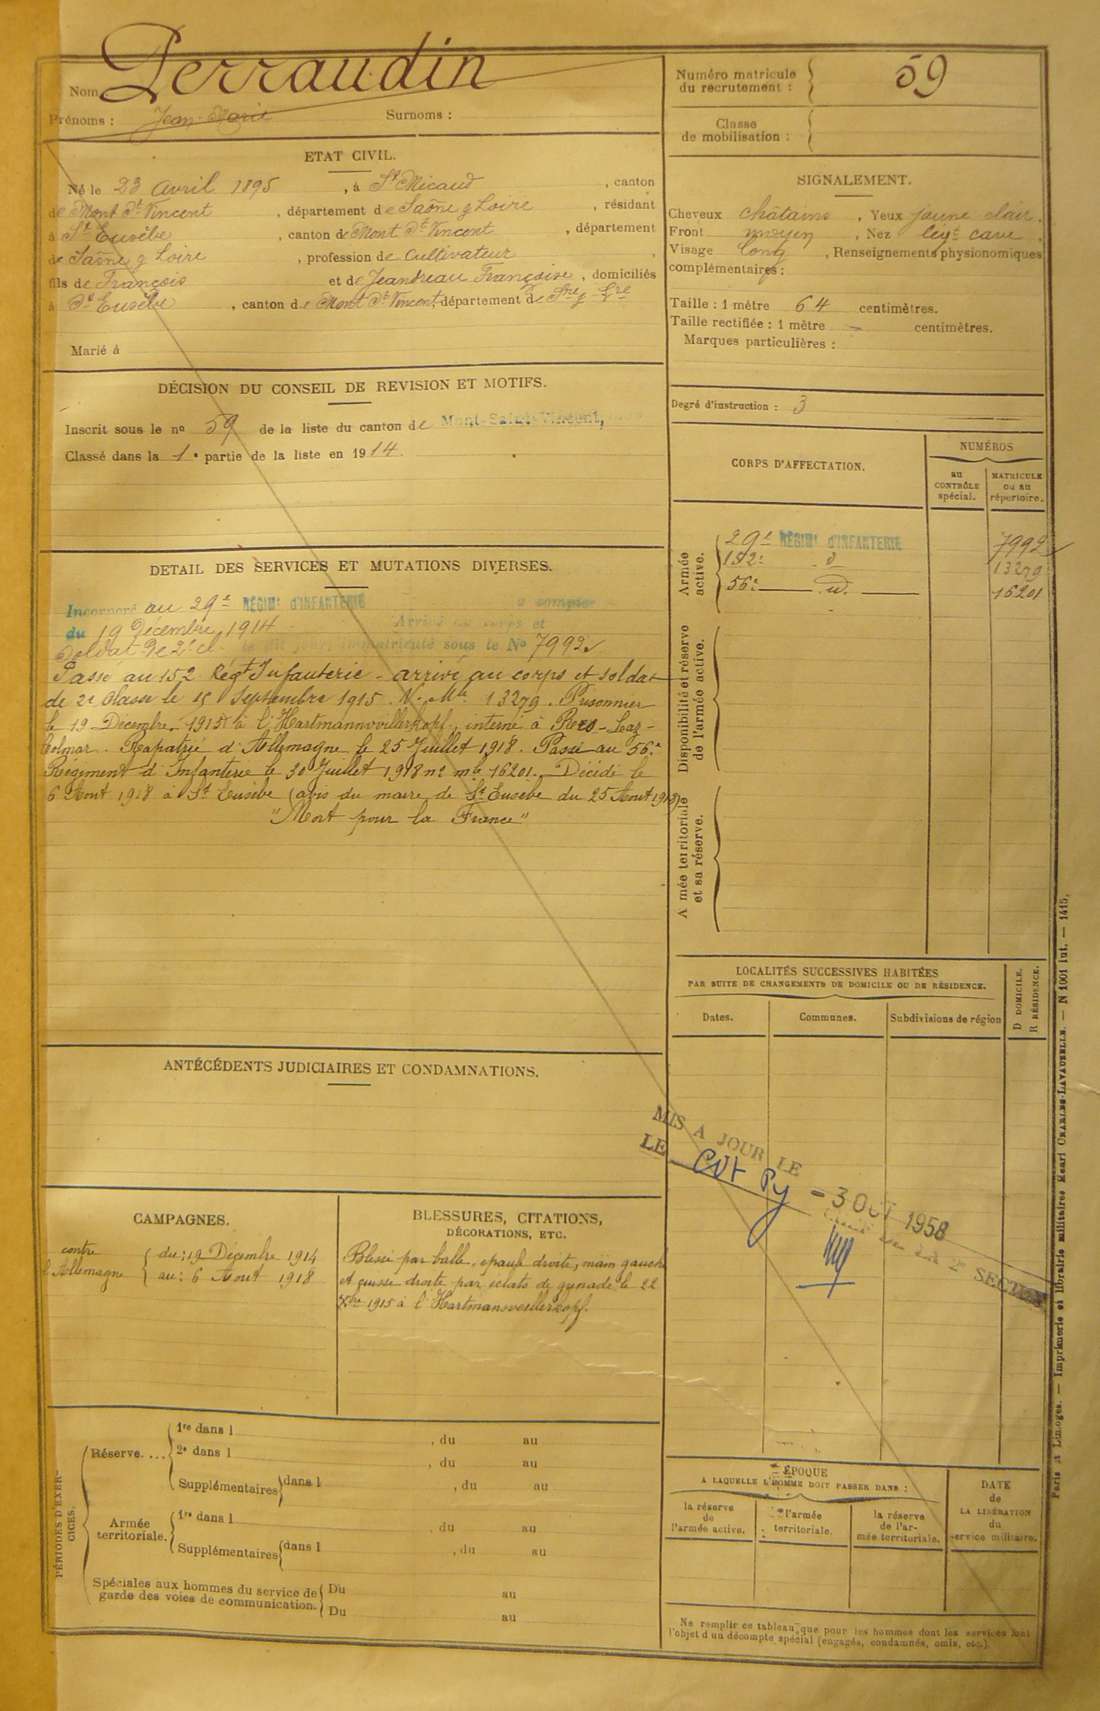 Nom Perraudin
Prénoms : Jean-Marie Surnoms :
ETAT CIVIL.
Né le 23 Avril 1895, à St Micaud, canton
de Mont St Vincent, département de Saône & Loire, résidant
à St Eusèbe, canton de Mont St Vincent, département
de Saône & Loire, profession de Cultivateur,
fils de François et de Jeandreau Françoise, domiciliés
à St Eusèbe, canton de Mont St Vincent département de Sne & Lre
Marié à
DÉCISION DU CONSEIL DE REVISION ET MOTIFS.
Inscrit sous le no 59 de la liste du canton de Mont-Saint-Vincent,
Classé dans la 1e partie de la liste en 1914.
DETAIL DES SERVICES ET MUTATIONS DIVERSES.
Incorporé au 29e RÉGIMt D'INFANTERIE à compter
du 19 Décembre 1914. Arrivé au corps et
Soldat de 2e cl. le dit jour, immatriculé sous le No 7992
Passé au 152 Régt Infanterie - arrivé au corps et soldat
de 2e Classe le 15 Septembre 1915 No Mle 13279. Prisonnier
le 19 Décembre 1915 à l'Hartmannwillerkopf, interné à
Colmar. Rapatrié d'Allemagne le 25 Juillet 1918. Passé au 56e
Régiment d'Infanterie le 30 Juillet 1918 no mle 16201. Décédé le
6 Aout 1918 à St Eusèbe (avis du maire de St Eusèbe du 25 Aout 1918)
"Mort pour la France"
ANTÉCÉDENTS JUDICIAIRES ET CONDAMNATIONS.
CAMPAGNES.
contre
l'Allemagne
du : 19 Décembre 1914
au : 6 Aout 1918
BLESSURES, CITATIONS,
DÉCORATIONS, ETC.
Blessé par balle, épaule droite, main gauche
et cuisse droite par éclats de grenade le 22
Xbre 1915 à l'Hartmansveillerkopf.
PÉRIODES D'EXERCICES.
Réserve....
1re dans l , du au
2e dans l , du au
Supplémentaires dans l , du au
Armée
territoriale.
1re dans l , du au
Supplémentaires dans l , du au
Spéciales aux hommes du service de
garde des voies de communication.
Du au
Du au
Numéro matricule
du recrutement :
59
Classe
de mobilisation :
SIGNALEMENT.
Cheveux châtains, Yeux jaune clair.
Front moyen, Nez cave,
Visage long, Renseignements physionomiques
complémentaires :
Taille : 1 mètre 64 centimètres.
Taille rectifiée : 1 mètre – centimètres.
Marques particulières :
Degré d'instruction : 3
CORPS D'AFFECTATION.
NUMÉROS
au
CONTRÔLE
spécial.
MATRICULE
ou au
répertoire.
Armée
active.
29e RÉGIMt D'INFANTERIE 7992
152e d 13279
56e d 16201
Disponibilité et réserve
de l'armée active.
A mée territoriale
et sa réserve.
LOCALITÉS SUCCESSIVES HABITÉES
PAR SUITE DE CHANGEMENTS DE DOMICILE OU DE RÉSIDENCE.
Dates. Communes. Subdivisions de région
D DOMICILE.
R RÉSIDENCE.
MIS A JOUR LE
LE Cdt Py - 3 OCT 1958
CHEF DE LA 2e SECTION
ÉPOQUE
A LAQUELLE L'HOMME DOIT PASSER DANS :
la réserve
de
l'armée active.
l'armée
territoriale.
la réserve
de l'ar-
mée territoriale.
DATE
de
LA LIBÉRATION
du
service militaire.
Ne remplir ce tableau que pour les hommes dont les services font
l'objet d'un décompte spécial (engagés, condamnés, omis, etc.).
Paris et Limoges. — Imprimerie et librairie militaires Henri CHARLES-LAVAUZELLE. — N 1001 int. — 1415.